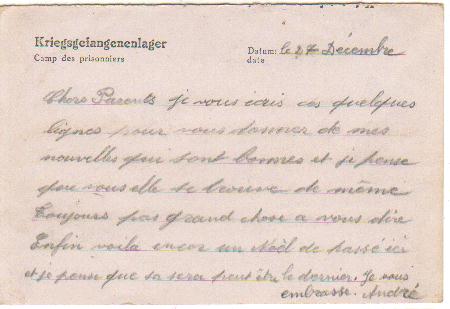 Kriegsgefangenenlager
Camp des prisonniers
Datum: le 27 Décembre
date
Chers Parents je vous écris ces quelques
lignes pour vous donner de mes
nouvelles qui sont bonnes et je pense
que vous elle se trouve de même
Toujours pas grand chose a vous dire
Enfin voila encor un Noël de passé ici
et je pense que sa sera peut être le dernier. Je vous
embrasse. André